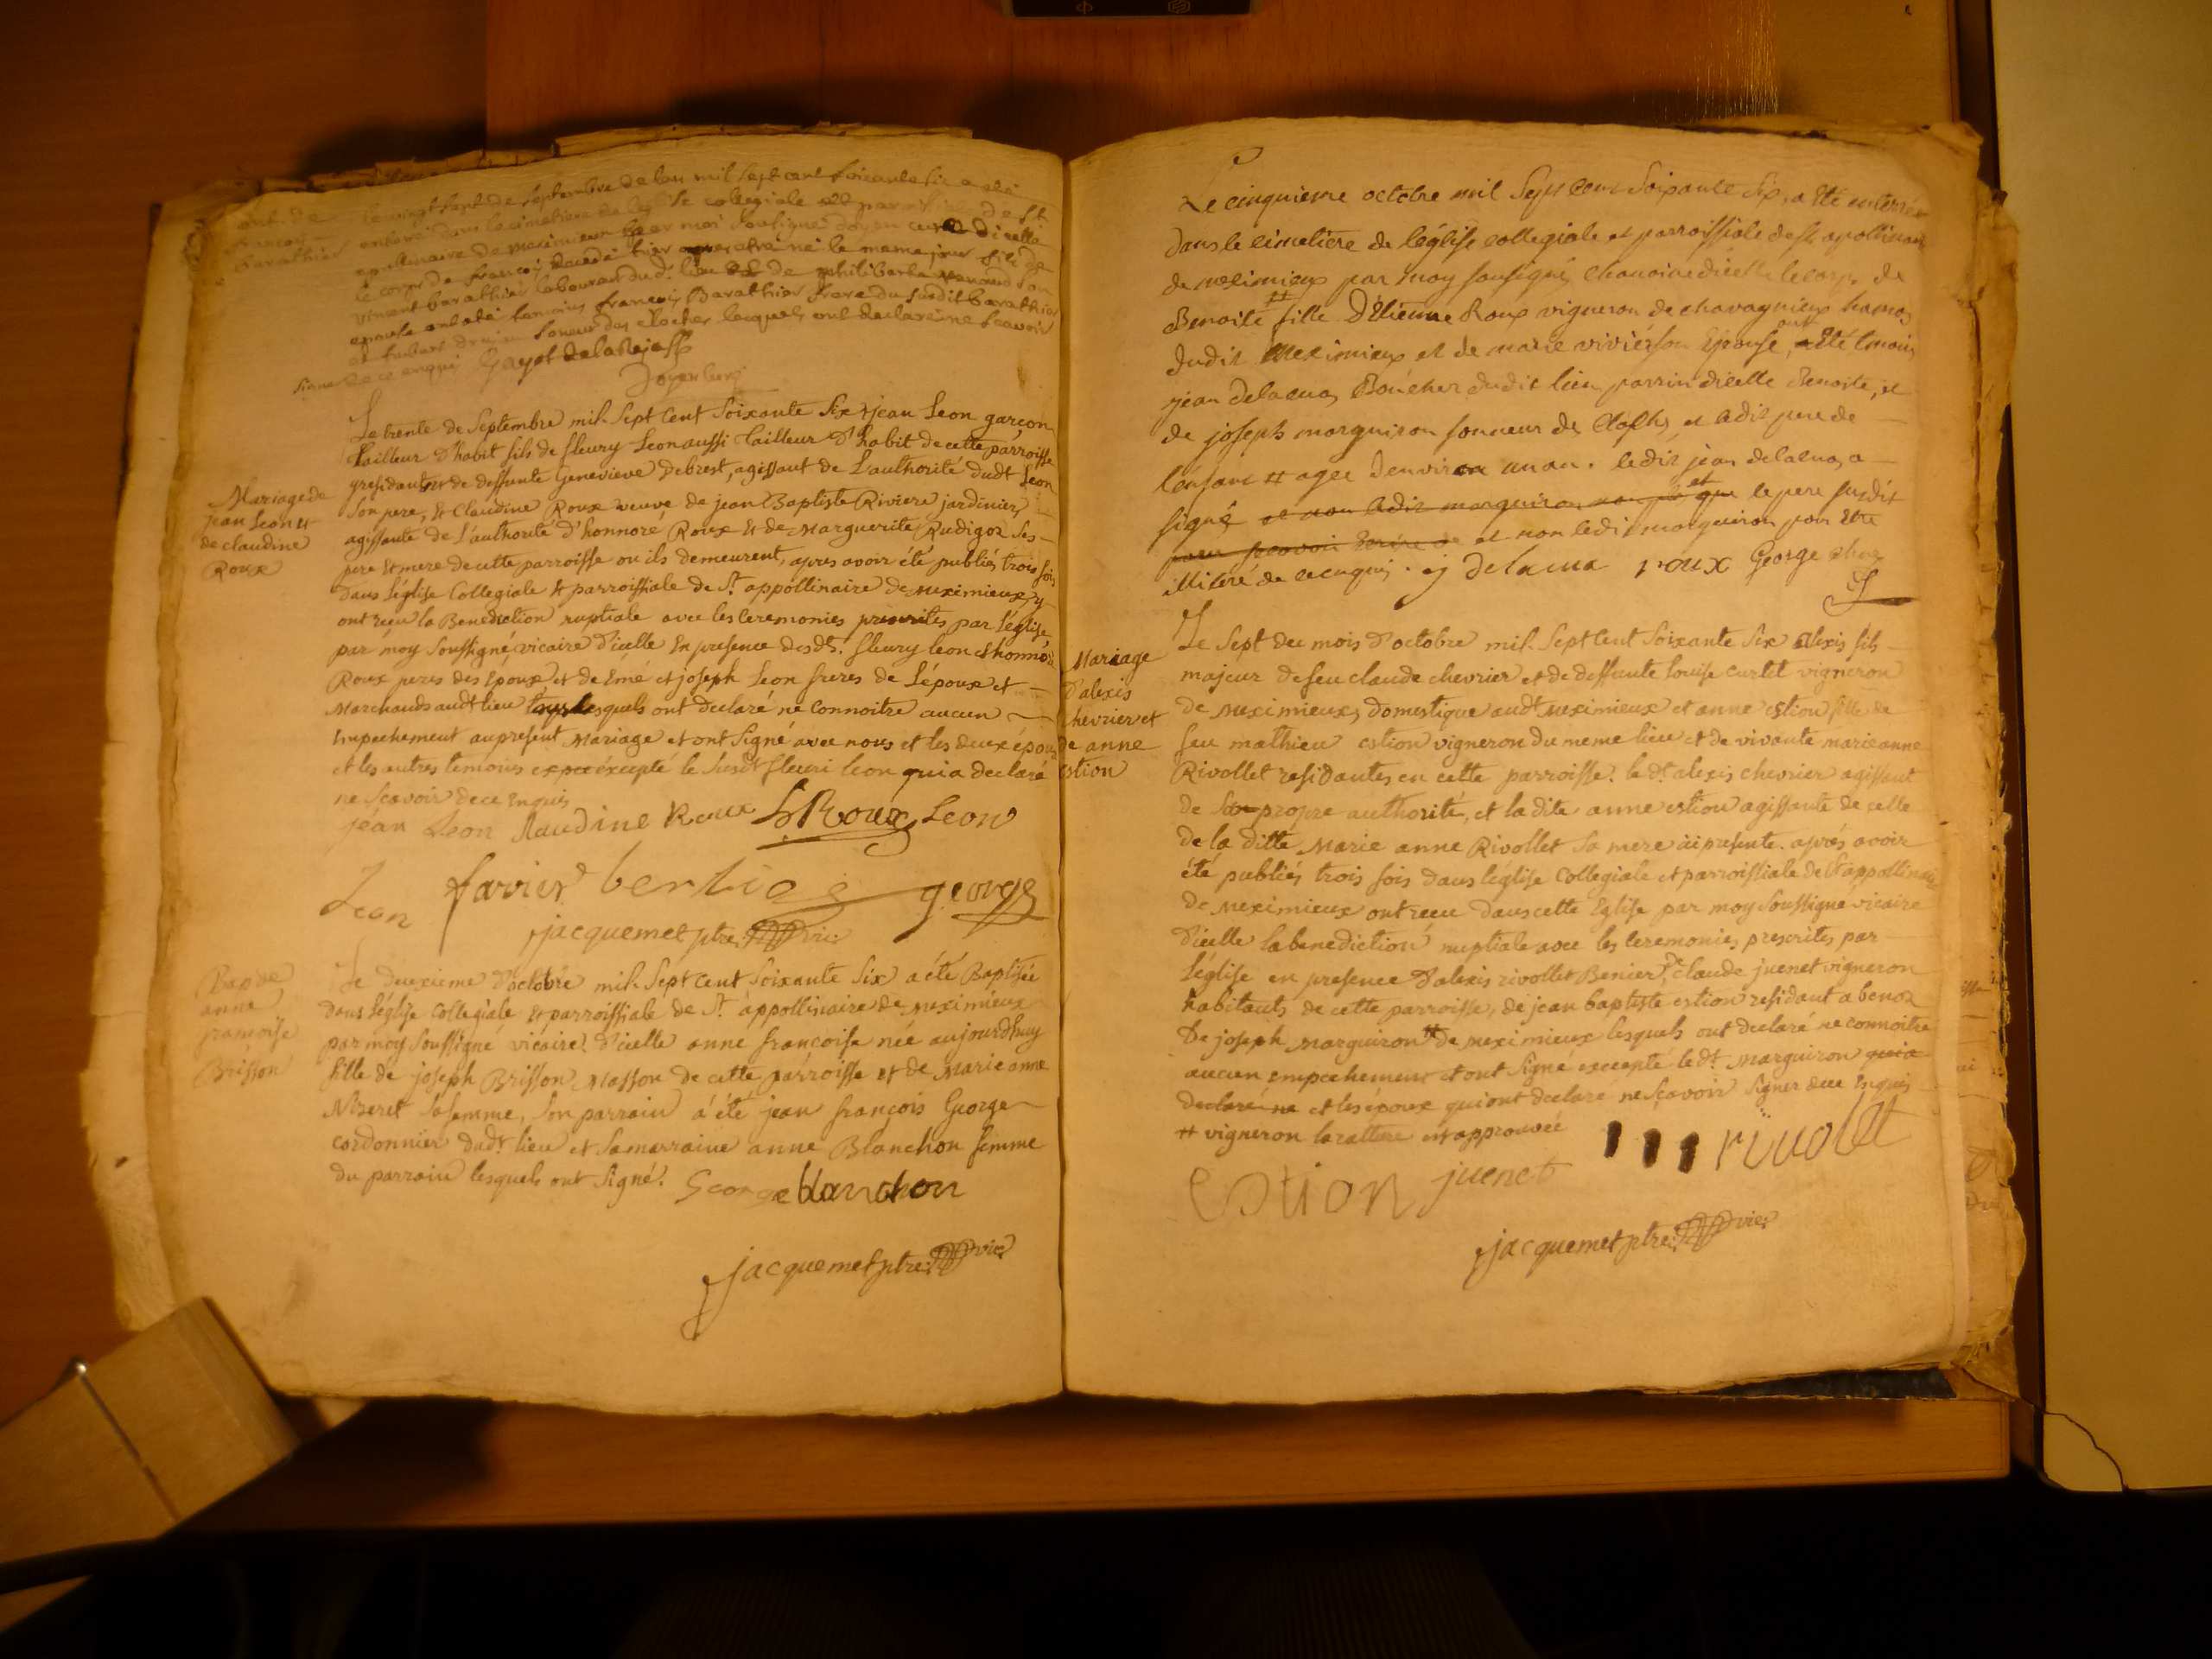 ent. de
françois
barathier
le vingt sept de septembre de l'an mil sept cent soixante six a été
enterré dans le cimetiere de l'eglise collegiale et paroissiale de st
apollinaire de meximieux par moi soussigné doyen curé d'icelle
le corps de françois decedé hier né le meme jour fils de
vincent barathier laboureur dud. lieu et de philiberte renaud son
epouse ont été temoins françois Barathier frere du susdit barathier
et soneur des cloches lesquels ont declaré ne scavoir
signer de ce enquis Gayot delaRejasse
Doyen curé
Mariage de
jean Leon et
de claudine
Roux
Le trente de Septembre mil. Sept Cent Soixante Six jean Leon garçon
tailleur d'habit fils de fleury Leon aussi tailleur d'habit de cette parroisse
presidant et de deffunte Genevieve Debrest, agissant de L'authorité dudt Leon
Son pere, Et Claudine Roux veuve de jean Baptiste Riviere jardinier,
agissante de l'authorité d'honnoré Roux Et de Marguerite Rudigoz Ses
pere Et mere de cette parroisse ou ils demeurent, apres avoir été publiés trois fois
dans l'église Collegiale et parroissiale de St. appollinaire de meximieux, y
ont reçu la Benediction nuptiale avec les Ceremonies prescrites par l'église,
par moy Soussigné, vicaire d'icelle En presence desdts. fleury leon et honnoré
Roux peres des Epoux et de Emé et joseph Leon freres de L'époux et
Marchands audt lieu tous lesquels ont declaré ne Connoitre aucun
Empechement au present Mariage et ont Signé avec nous et les deux époux
et les autres temoins expce éxcepté le Susdt fleuri leon qui a declaré
ne Scavoir de ce Enquis
jean Leon Claudine Roux h Roux Leon
Leon favier berlioz george
jacquemet ptre. vic.
Bapme
anne
françoise
Brisson
Le deuxieme d'octobre mil. Sept Cent Soixante Six a été Baptisée
dans l'église Collegiale Et parroissiale de St. appollinaire de meximieux
par moy Soussigné vicaire d'icelle anne françoise née aujourd'huy
fille de joseph Brisson Masson de cette parroisse et de Marie anne
Nizeret Sa femme, Son parrain a été jean françois George
cordonnier dudt. lieu et Sa marraine anne Blanchon femme
du parrain lesquels ont Signé. George blanchon
jacquemet ptre. vic.
Le cinquieme octobre mil Sept Cent Soixante Six, a Eté enterrée
dans le cimetiere de l'église collegiale et parroissiale de st apollinaire
de meximieux par moy soussigné, chanoine d'icelle le corps de
Benoite # fille D'étienne Roux vigneron de chavagnieux hameau
dudit Meximieux et de marie vivier son Epouse, ont Eté temoins
jean delacua, Boucher dudit lieu, parrin d'icelle Benoite, et
de joseph marguiron sonneur de Cloches, et ledit pere de
l'enfant # agee d'environ un an. ledit jean delacua, a
signé et non ledit marguiron et que le pere susdit
pour scavoir Ecrire et non ledit marguiron pour Etre
illiteré de ce enquis. j Delacua roux George chne
Mariage
d'alexis
chevrier et
de anne
Estion
Le Sept du mois d'octobre mil. Sept Cent Soixante Six alexis fils
majeur de feu claude chevrier et de deffunte louise curtet vigneron
de meximieux, domestique audt meximieux et anne estion fille de
feu mathieu estion vigneron du meme lieu et de vivante marie anne
Rivollet residantes en cette parroisse. le dt. alexis chevrier agissant
de Son propre authorité, et la dite anne estion agissante de celle
de la ditte Marie anne Rivollet Sa mere ici presente. aprés avoir
été publiés trois fois dans l'église Collegiale et parroissiale de St appollinaire
de Meximieux ont reçu dans cette Eglise par moy Soussigné vicaire
d'icelle la benediction nuptiale avec les Ceremonies prescrites par
L'église en presence d'alexis rivollet Benier, de claude juenet vigneron
habitants de cette parroisse, de jean baptiste estion residant a benoz
De joseph marguiron # de meximieux lesquels ont declaré ne connoitre
aucun empechement et ont Signé excepté le dt. marguiron qui a
declaré ne et les époux qui ont declaré ne Sçavoir Signer de ce Enquis
# vigneron la rature est approuvée
rivolet
estion juenet
jacquemet ptre. vic.